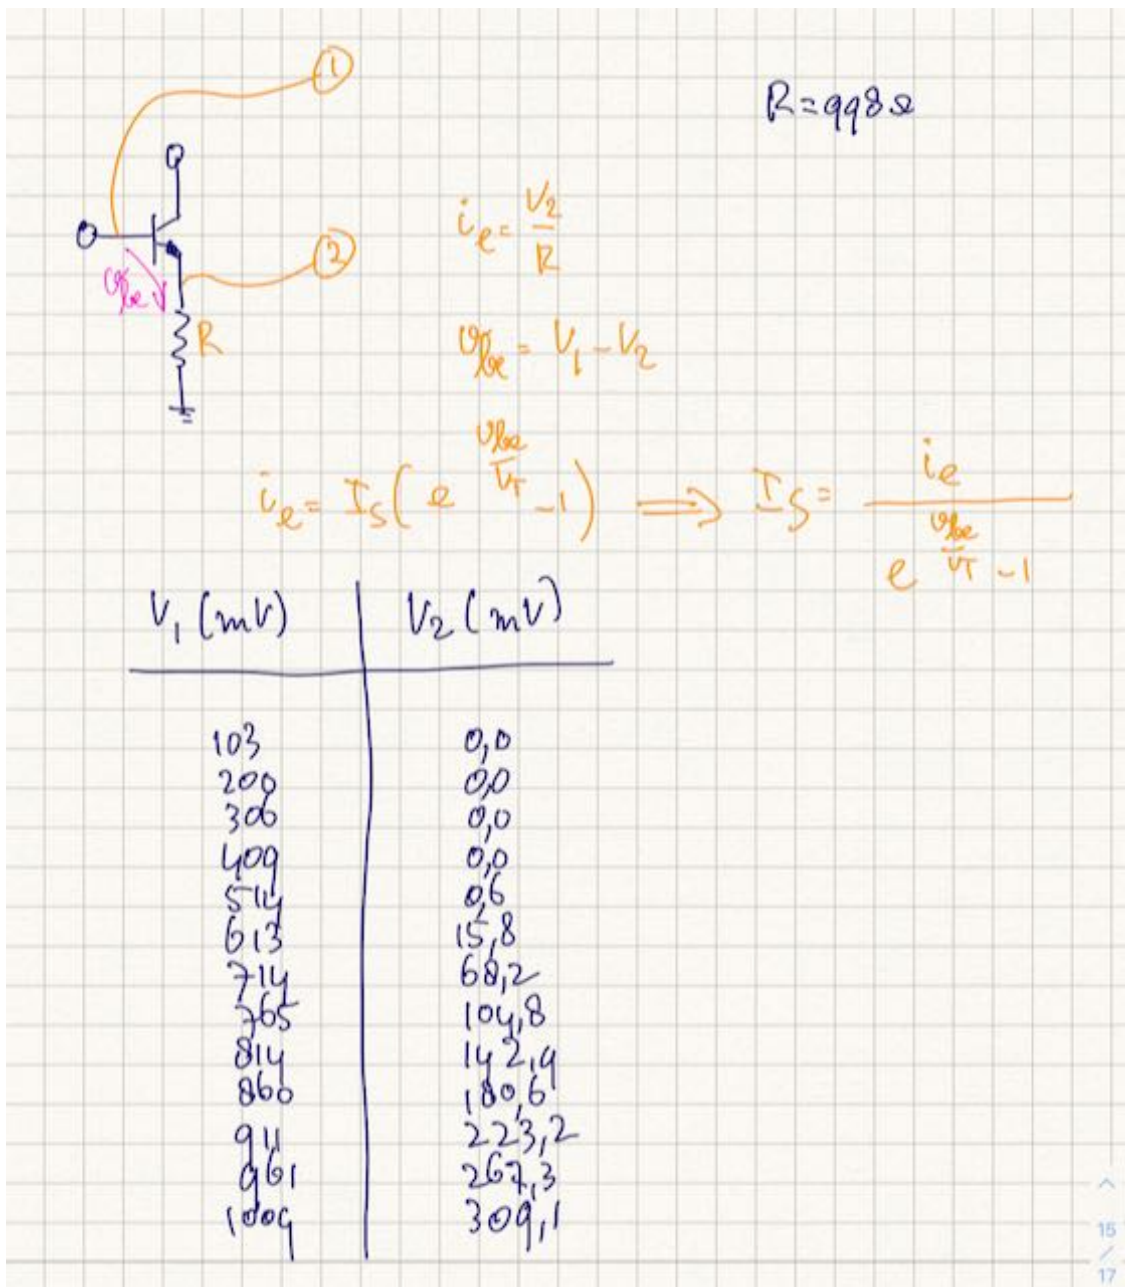 1
R=998Ω
2
i_e = V_2/R
v_be
R
v_be = V_1 - V_2
i_e = I_S(e^(v_be/V_T) - 1) ⟹ I_S = i_e/(e^(v_be/V_T) - 1)
V_1 (mV) V_2 (mV)
103 0,0
200 0,0
306 0,0
409 0,0
514 0,6
613 15,8
714 68,2
765 104,8
814 142,9
860 180,6
911 223,2
961 267,3
1009 309,1
15
/
17